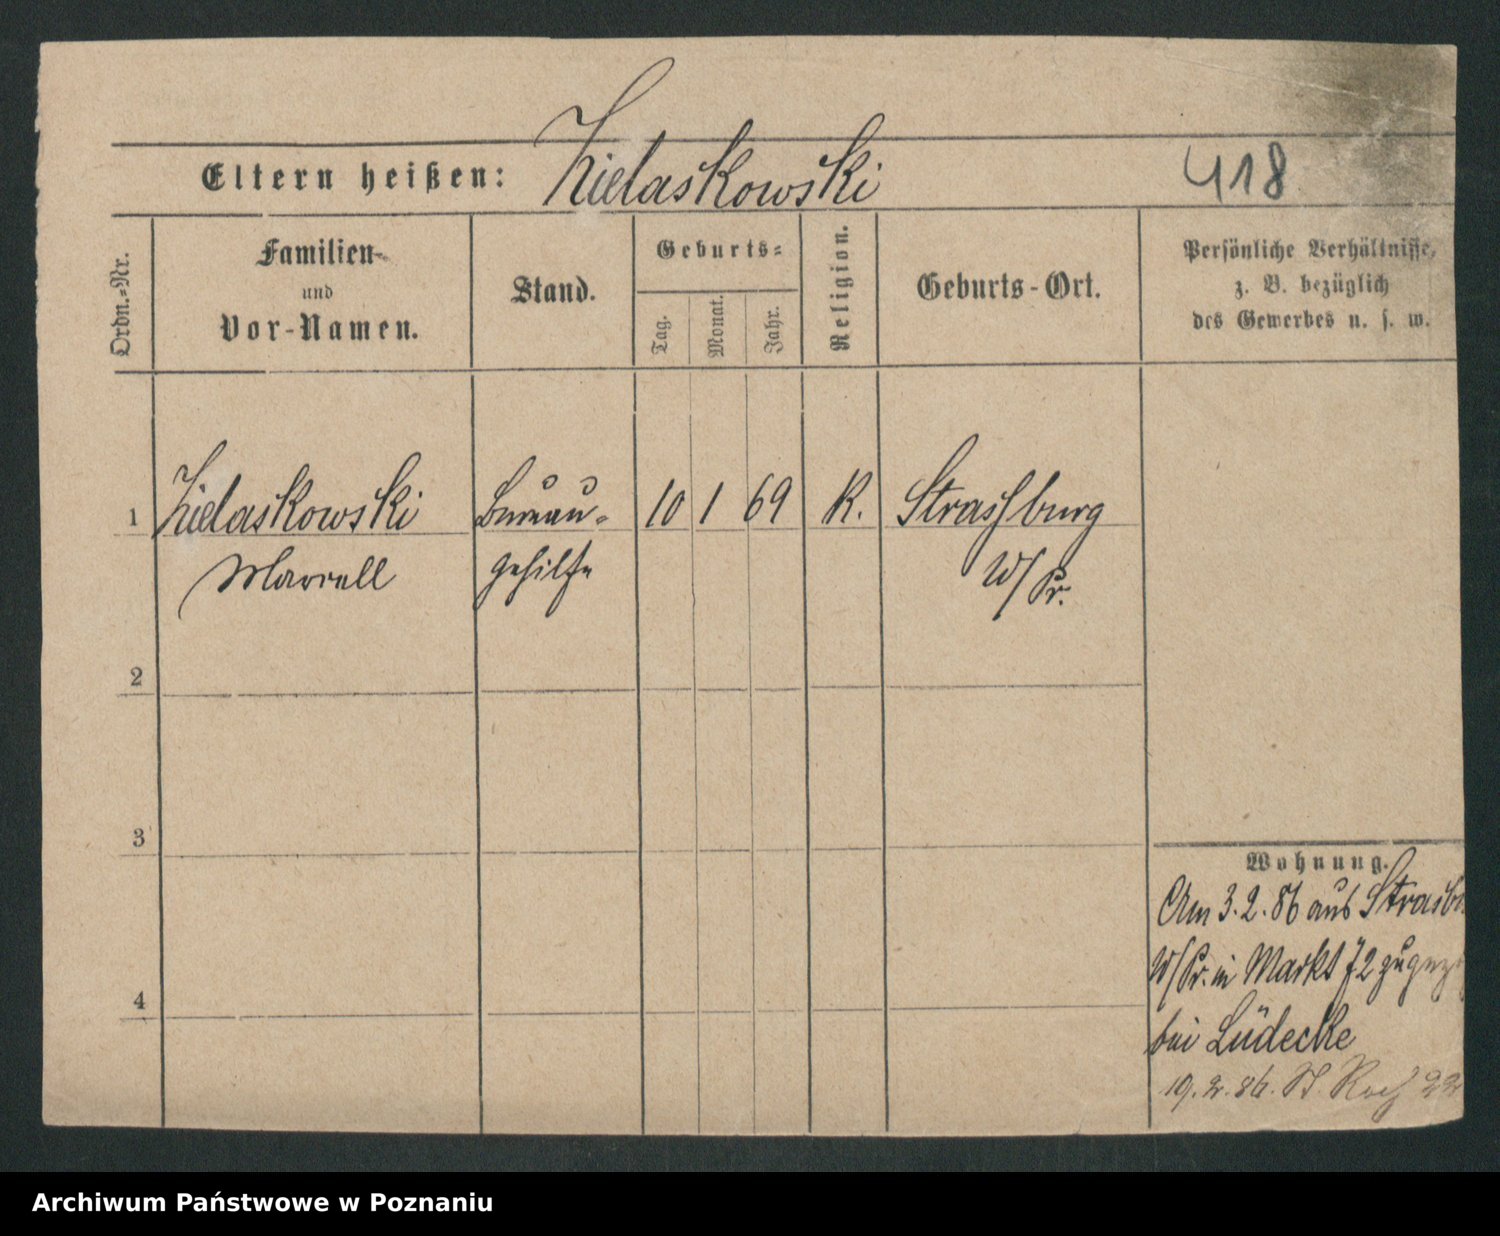 Eltern heißen: Zielaskowski
418
Ordn.-Nr.
Familien-
und
Vor-Namen.
Stand.
Geburts-
Tag.
Monat.
Jahr.
Religion.
Geburts-Ort.
Persönliche Verhältnisse,
z. B. bezüglich
des Gewerbes u. s. w.
1 Zielaskowski Bureau- 10 1 69 K. Strassburg
Marcell gehilfe W/Pr.
2
3
4
Wohnung.
Am 3. 2. 86 aus Strasb
W/Pr. in Markt 72 zugez
bei Lüdecke
19. 2. 86. St. Roch 22